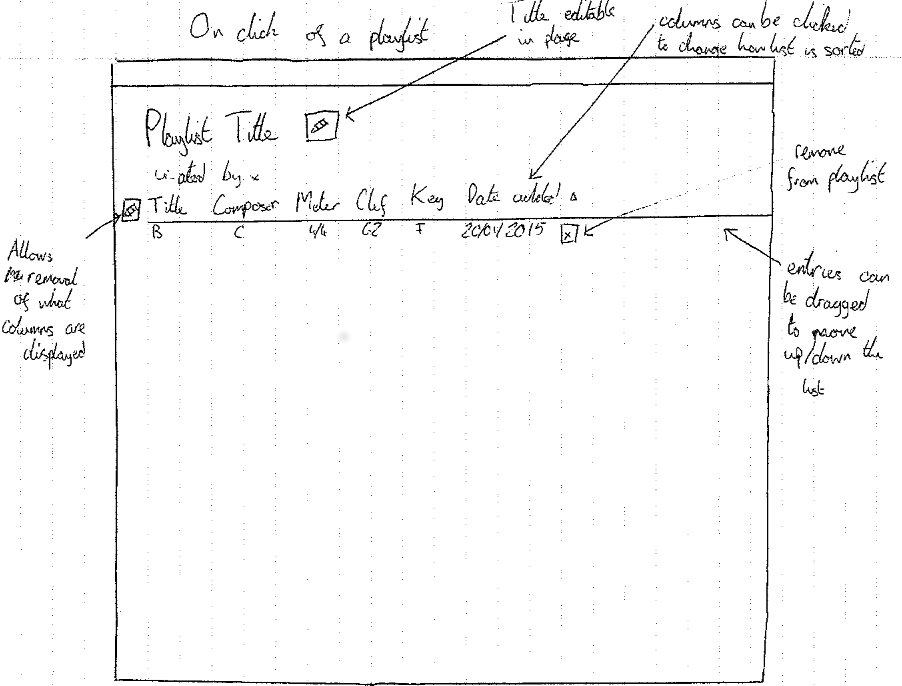 On click of a playlist
Title editable
in page
columns can be clicked
to change how list is sorted
Playlist Title
created by x
remove
from playlist
Title Composer Meter Clef Key Date
B C 4/4 G2 F 20/04/2015 x
Allows
removal
of what
columns are
displayed
entries can
be dragged
to move
up/down the
list